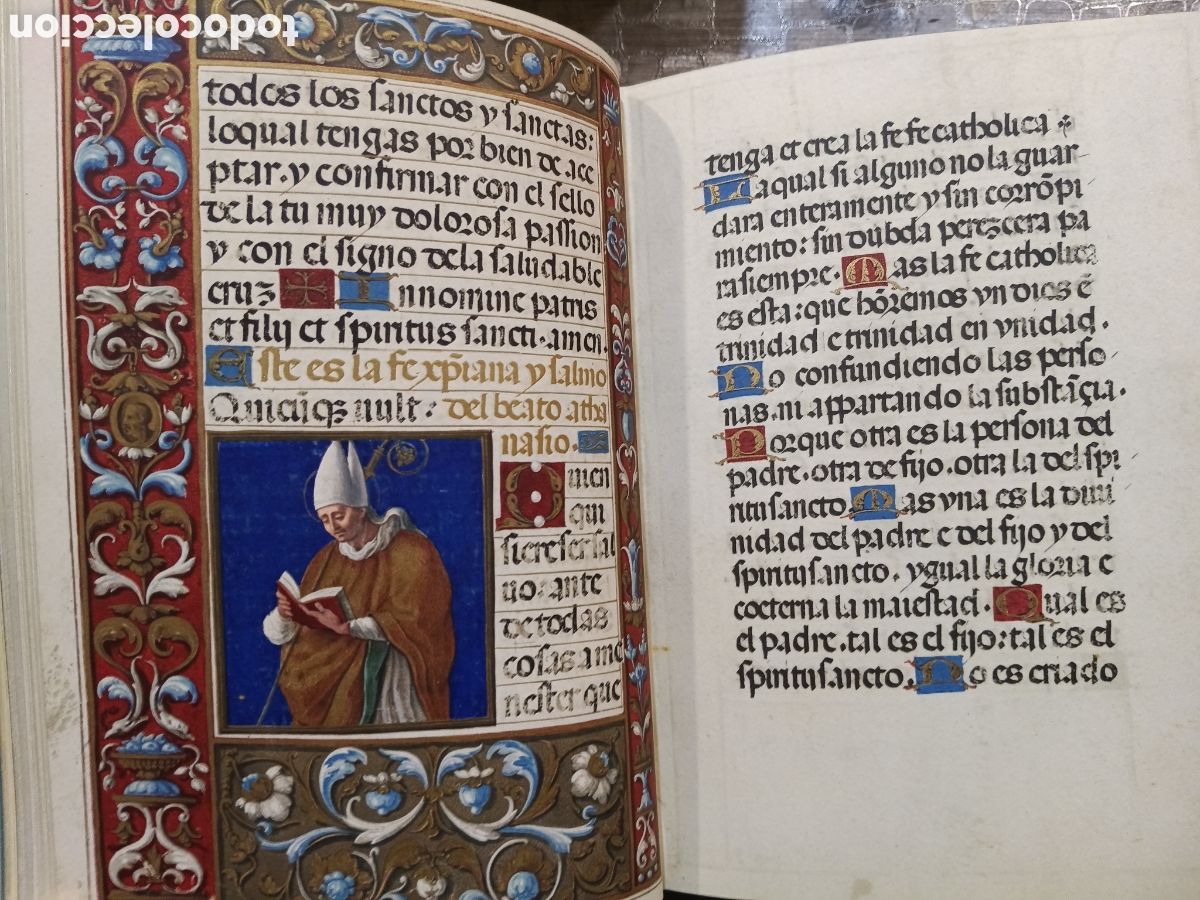 todocoleccion
todos los sanctos y sanctas:
loqual tengas por bien de ace
ptar. y confirmar con el sello
de la tu muy dolorosa passion
y con el signo dela saludable
cruz ✠ Innomine patris
et filij et spiritus sancti. amen.
Este es la fe xp̃iana y salmo
Quicũqꝫ uult: del beato atha
nasio.
Quien
qui
siere ser sal
uo: ante
de todas
cosas a me
nester que
tenga et crea la fe fe catholica
La qual si alguno no la guar-
dara enteramente y sin corrõpi
miento: sin dubda perezcera pa
ra siempre. Mas la fe catholica
es esta: que hõremos vn dios ẽ
trinidad e trinidad en vnidad.
No confundiendo las perso
nas. ni appartando la substãçia.
Porque otra es la persona del
padre. otra de fijo. otra la del spi
ritu sancto Mas vna es la diui
nidad del padre e del fijo y del
spiritu sancto. ygual la gloria e
coeterna la maiestad. Qual es
el padre. tal es el fijo: tal es el
spiritu sancto. No es criado